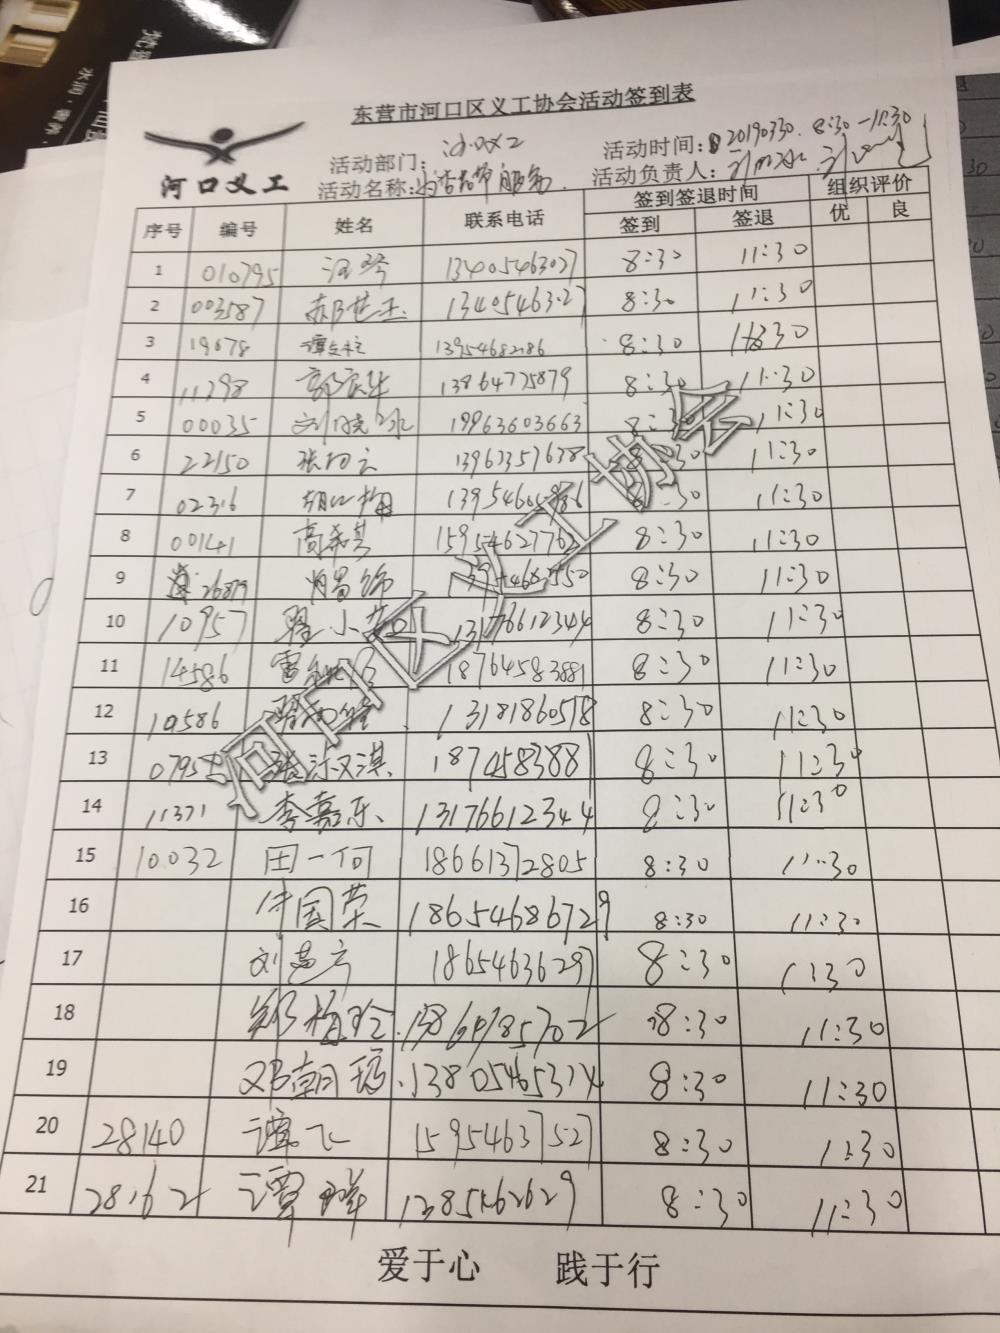 东营市河口区义工协会活动签到表
河口义工
活动部门：河口义工
活动时间：20190330. 8:30-11:30
活动名称：
活动负责人：
序号 编号 姓名 联系电话 签到签退时间 组织评价
签到 签退 优 良
1 010795 13405463027 8:30 11:30
2 003587 13405463027 8:30 11:30
3 19678 谭文柱 13954682186 8:30 11:30
4 11298 13864775879 8:30 11:30
5 00035 刘晓冰 19963603663 8:30 11:30
6 22150 13963357638 8:30 11:30
7 02316 8:30 11:30
8 001441 高希英 15954627762 8:30 11:30
9 26879 8:30 11:30
10 10957 13176612344 8:30 11:30
11 14586 18764583881 8:30 11:30
12 10586 13181860578 8:30 11:30
13 1874583881 8:30 11:30
14 11371 李嘉乐 13176612344 8:30 11:30
15 10032 田一何 18661372805 8:30 11:30
16 国荣 18654686729 8:30 11:30
17 刘 18654636297 8:30 11:30
18 郑 8:30 11:30
19 邓朝 13805465374 8:30 11:30
20 28140 谭飞 15954637527 8:30 11:30
21 28162 谭 8:30 11:30
河口区义工协会
爱于心 践于行